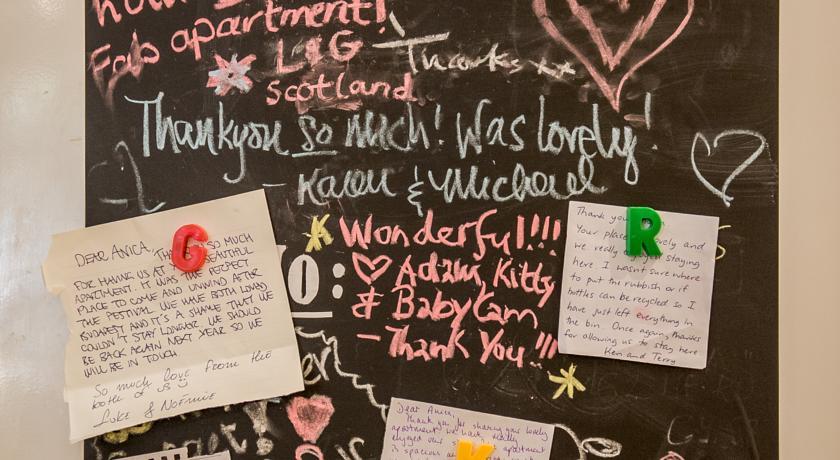 Fab apartment!
L & G
Scotland
Thanks xx
Thankyou so much! Was lovely!
- Karen & Michael
Wonderful!!!
Adam, Kitty
& Baby Cam
- Thank You!!!
DEAR ANICA, SO MUCH
FOR HAVING US AT BEAUTIFUL
APARTMENT. IT WAS THE PERFECT
PLACE TO COME AND UNWIND AFTER
THE FESTIVAL. WE HAVE BOTH LOVED
BUDAPEST AND IT'S A SHAME THAT WE
COULDN'T STAY LONGER. WE SHOULD
BE BACK AGAIN NEXT YEAR SO WE
WILL BE IN TOUCH
So much love from the
both of us
Luke & Noémie
G
O:
R
Thank you
Your place lovely and
we really staying
here. I wasn't sure where
to put the rubbish or if
bottles can be recycled so I
have just left everything in
the bin. Once again, thanks
for allowing us to stay here
Ken and Terry
Dear Anica,
Thank you for sharing your lovely
apartment with us. We really
enjoyed our apartment
is spacious